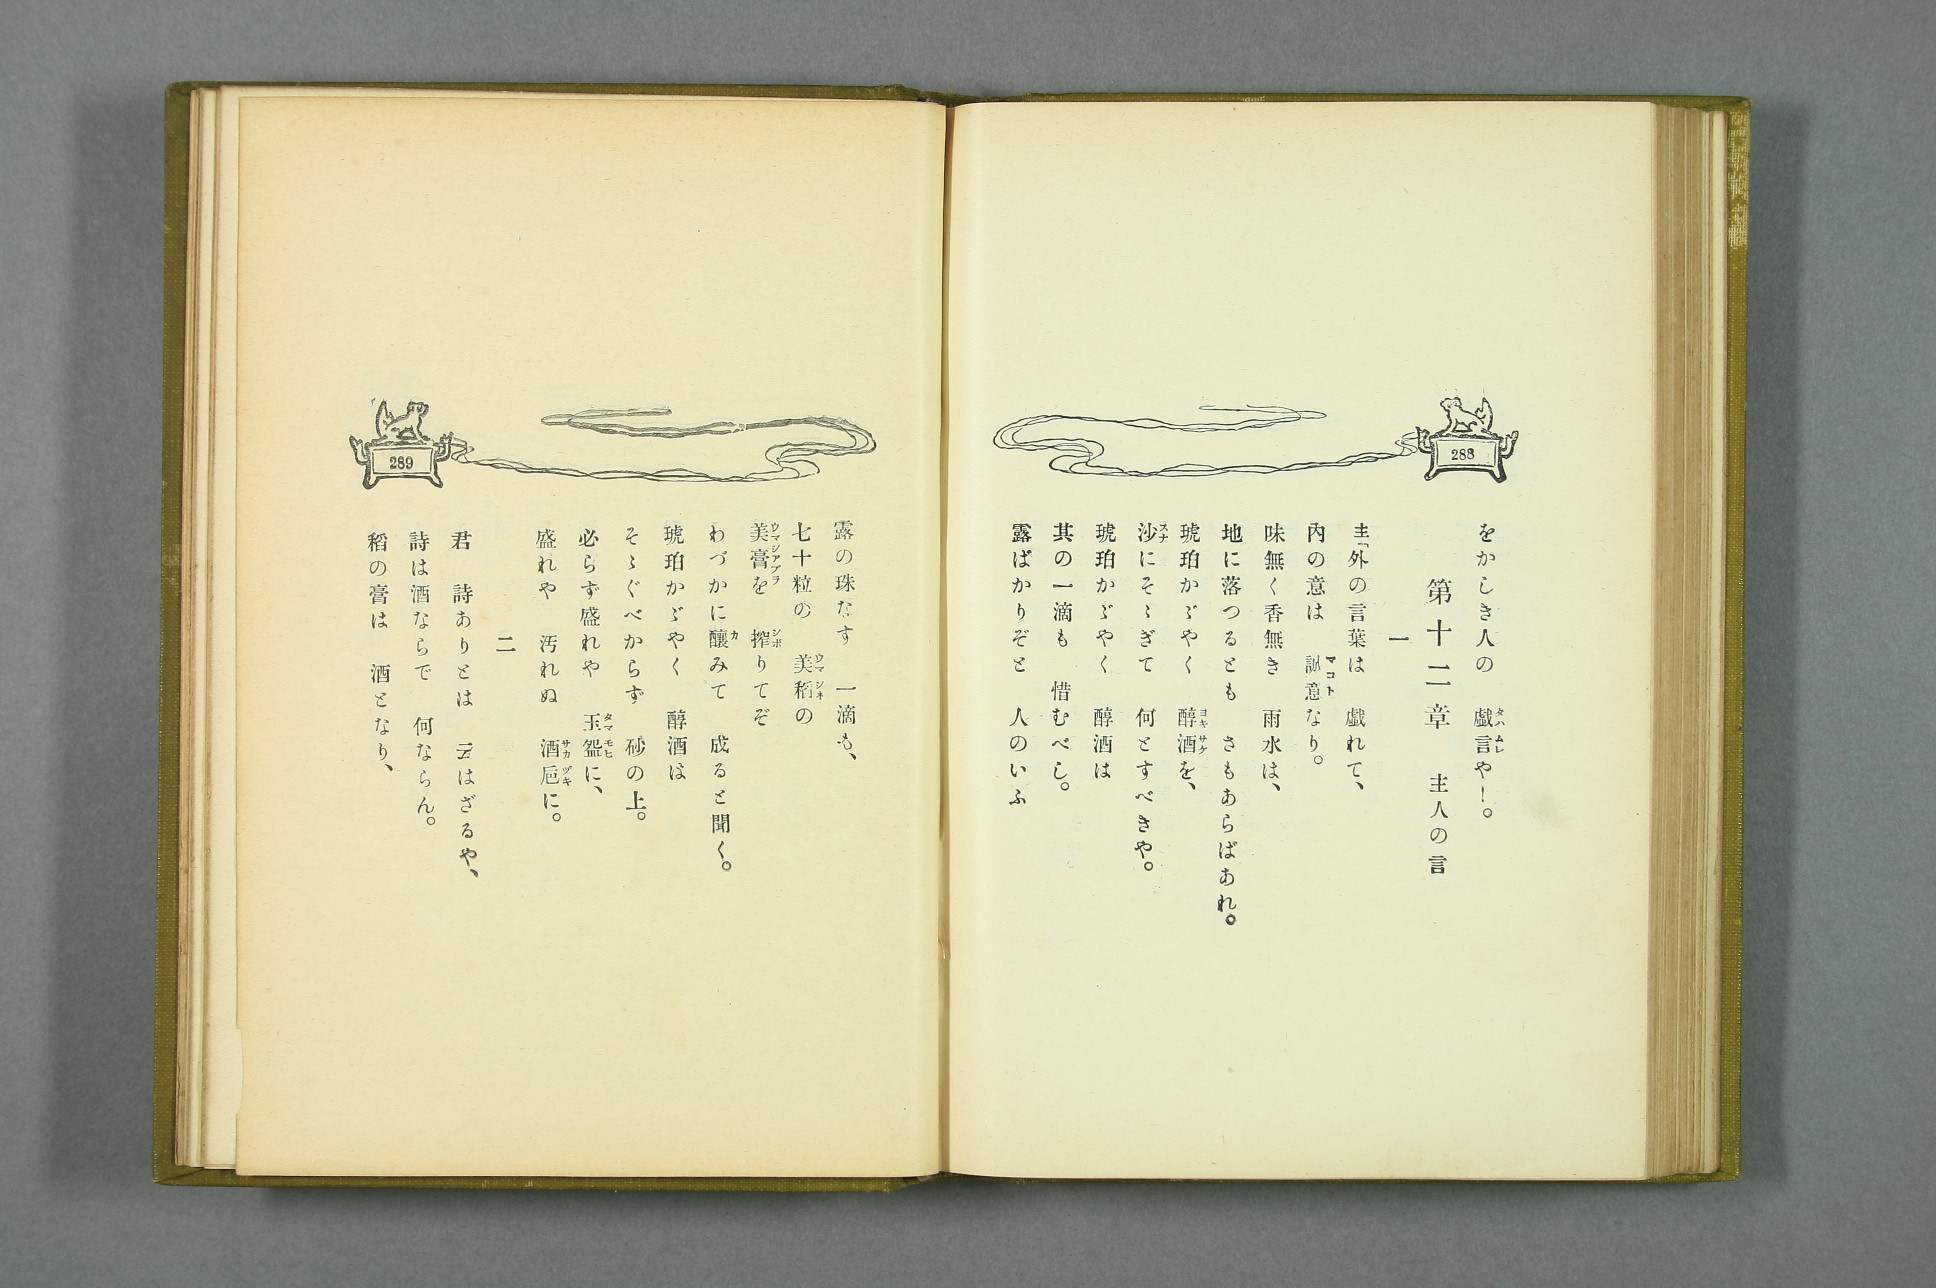 288
をかしき人の　戯言や！。
タハムレ
第十二章　主人の言
一
主「外の言葉は　戯れて、
內の意は　誠意なり。
マコト
味無く香無き　雨水は、
地に落つるとも　さもあらばあれ。
琥珀かゞやく　醇酒を、
ヨキサケ
沙にそゝぎて　何とすべきや。
スナ
琥珀かゞやく　醇酒は
其の一滴も　惜むべし。
露ばかりぞと　人のいふ
289
露の珠なす　一滴も、
七十粒の　美稻の
ウマシネ
美膏を　搾りてぞ
ウマシアブラ　シボ
わづかに釀みて　成ると聞く。
カ
琥珀かゞやく　醇酒は
そゝぐべからず　砂の上。
必らず盛れや　玉盌に、
タマモヒ
盛れや　汚れぬ　酒巵に。
サカヅキ
二
君　詩ありとは　はざるや、
詩は酒ならで　何ならん。
稻の膏は　酒となり、